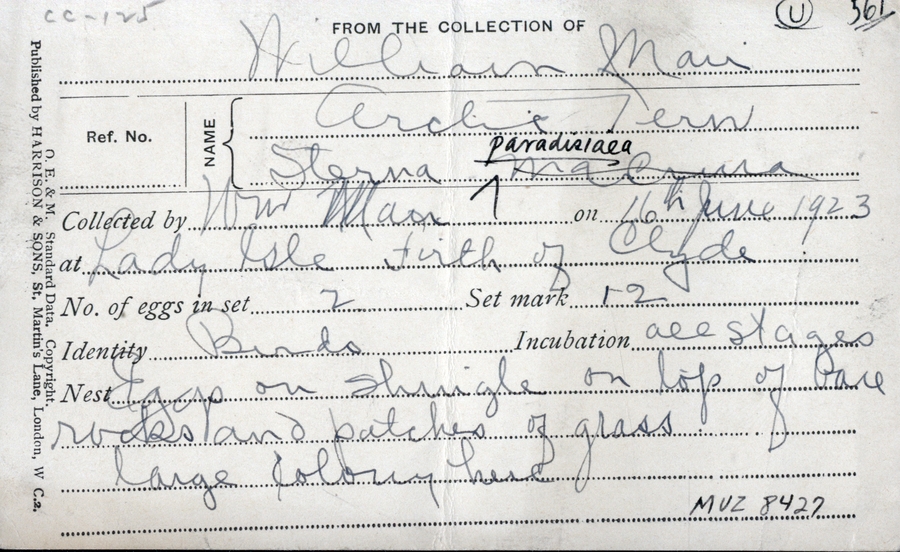 CC-125
U 561
FROM THE COLLECTION OF
William Mair
Ref. No.
NAME
Arctic Tern
paradisiaea
Sterna macrura
Collected by Wm Mair on 16th June 1923
at Lady Isle Firth of Clyde
No. of eggs in set 2 Set mark 1-2
Identity Birds Incubation all stages
Nest Eggs on shingle on top of bare
rocks and patches of grass
large colony here
MUZ 8427
O. E. & M. Standard Data, Copyright.
Published by HARRISON & SONS, St. Martin's Lane, London, W C.2.